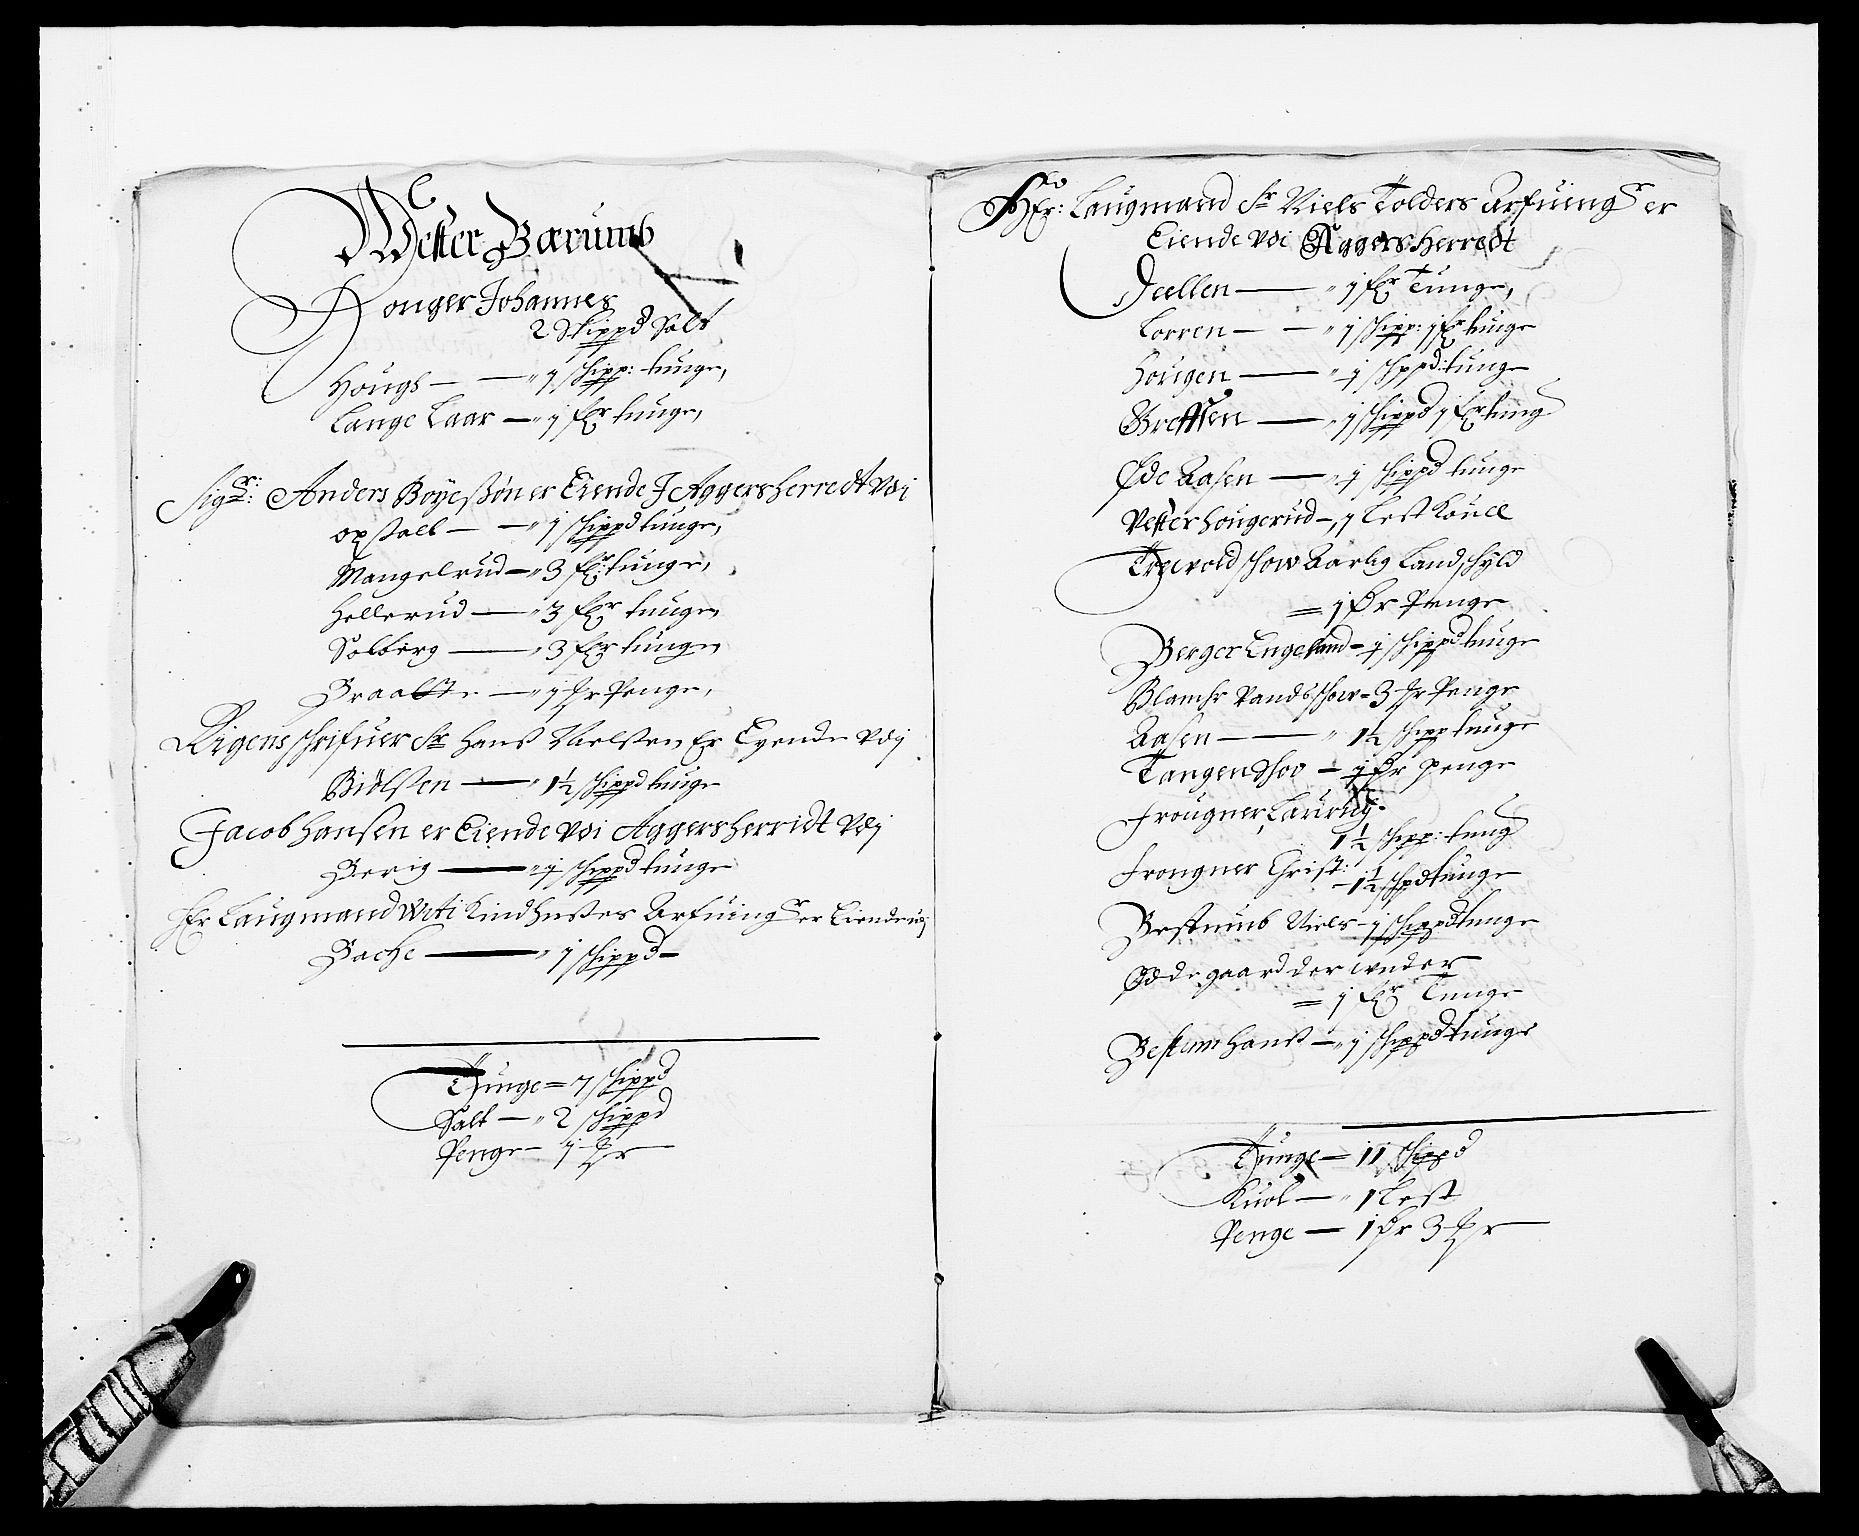 Wester Bærumb
Honger Johannes
2 Skippd Salt
Hougs — — " 1 schipp: tunge,
Lange Laar — " 1 fr tunge,
Sigr: Anders Boyesøn er Eiende J Aggersherredt vdi
opsall — — " 1 schippd tunge,
Mangelrud — " 3 fr: tunge,
Hellerud — " 3 fr tunge,
Solberg — " 3 fr tunge,
Braatte — " 1 Hr Penge,
Rigens schrifuer Sr Hans Nielsen Er Eyende vdj
Biølsen — " 1½ schippd tunge
Jacob Hansen er Eiende vdi Aggersherridt vdj
Berig — " 1 schippd tunge
Hr Laugmand Witi Kindhuses Arfuingr er Eiende vdj
Bache — " 1 schippd —
Tunge = 7 schippd
Salt — " 2 schippd
Penge — 1 Hr
Hfr: Laugmand Sr Niels Tolders Arfuingr er
Eiende vdi Aggersherredt
— " 1 fr Tunge,
Torren — — " 1 schipp: 1 fr tunge
Hougen — " 1 schppd: tunge
Greffsen — " 1 schippd 1 fr tung
Øde Aasen — " 1 schippd tunge
Vester Hougerud — " 1 Lest Koull
Trevold schow Aarlig Landschyld
= 1 Ør Penge
Berger Engeland — 1 schippd tunge
Vandsschow = 3 Hr Penge
Aasen — " 1½ schipp tunge
Tangen Schov — 1 Ør penge
Frougner, Lauritz.
1½ schipp: tung
Frongner Christ:
— 1½ schpd tunge
Bestumb Niels — 1 schippd tunge
Ødegaard der under
= 1 fr Tunge
Bestum Hans — " 1 schippd tunge
Tunge — 11 schippd
Kuol — " 1 Lest
Penge — 1 Ør 3 Hr